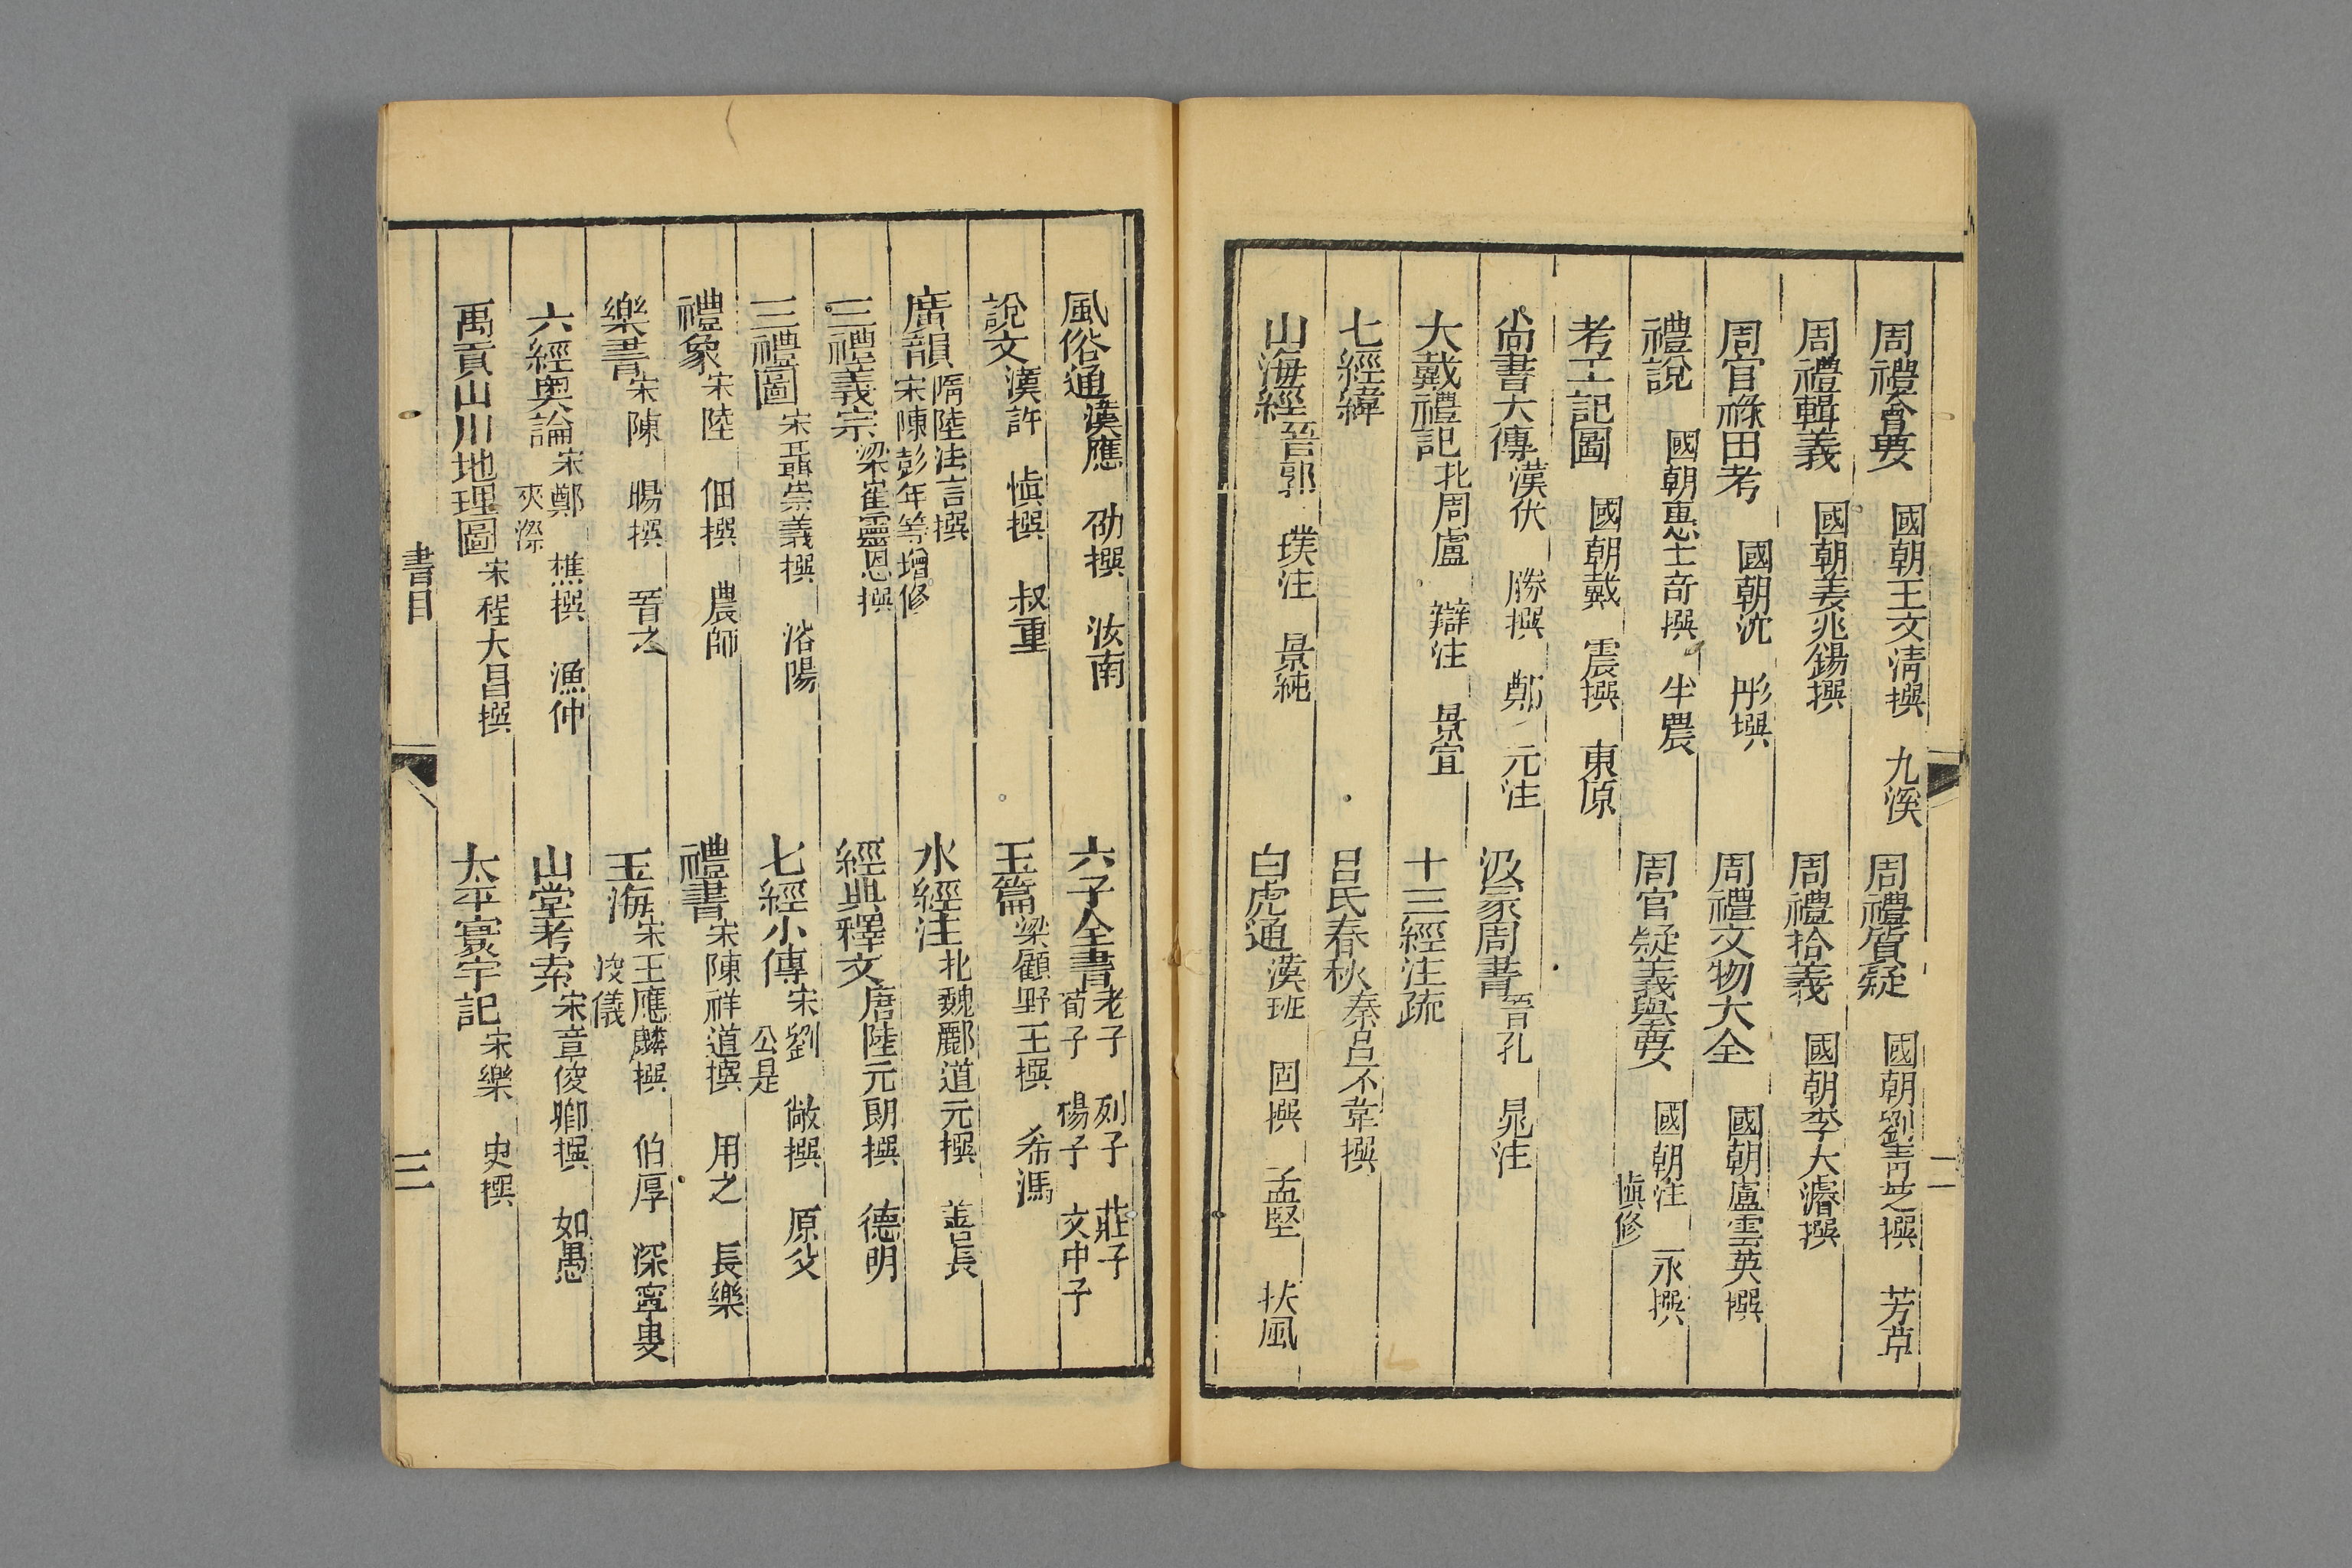 周禮會要　國朝王文清撰　九溪　周禮質疑　國朝劉青芝撰　芳草
周禮輯義　國朝姜兆錫撰　周禮拾義　國朝李大濬撰
周官祿田考　國朝沈　彤撰　周禮文物大全　國朝盧雲英撰
禮說　國朝惠士奇撰　半農　周官疑義舉要　國朝江　永撰　慎修
考工記圖　國朝戴　震撰　東原
尚書大傳　漢伏　勝撰　鄭　元注　汲冢周書　晉孔　晁注
大戴禮記　北周盧　辯注　景宣　十三經注疏
七經緯　呂氏春秋　秦呂不韋撰
山海經　晉郭　璞注　景純　白虎通　漢班　固撰　孟堅　扶風
二
風俗通　漢應　劭撰　汝南　六子全書　老子　列子　莊子　荀子　楊子　文中子
說文　漢許　慎撰　叔重　玉篇　梁顧野王撰　希馮
廣韻　隋陸法言撰　宋陳彭年等增修　水經注　北魏酈道元撰　善長
三禮義宗　梁崔靈恩撰　經典釋文　唐陸元朗撰　德明
三禮圖　宋聶崇義撰　洛陽　七經小傳　宋劉　敞撰　原父　公是
禮象　宋陸　佃撰　農師　禮書　宋陳祥道撰　用之　長樂
樂書　宋陳　暘撰　晉之　玉海　宋王應麟撰　伯厚　深寧叟　浚儀
六經奧論　宋鄭　樵撰　漁仲　夾漈　山堂考索　宋章俊卿撰　如愚
禹貢山川地理圖　宋程大昌撰　太平寰宇記　宋樂　史撰
書目　三